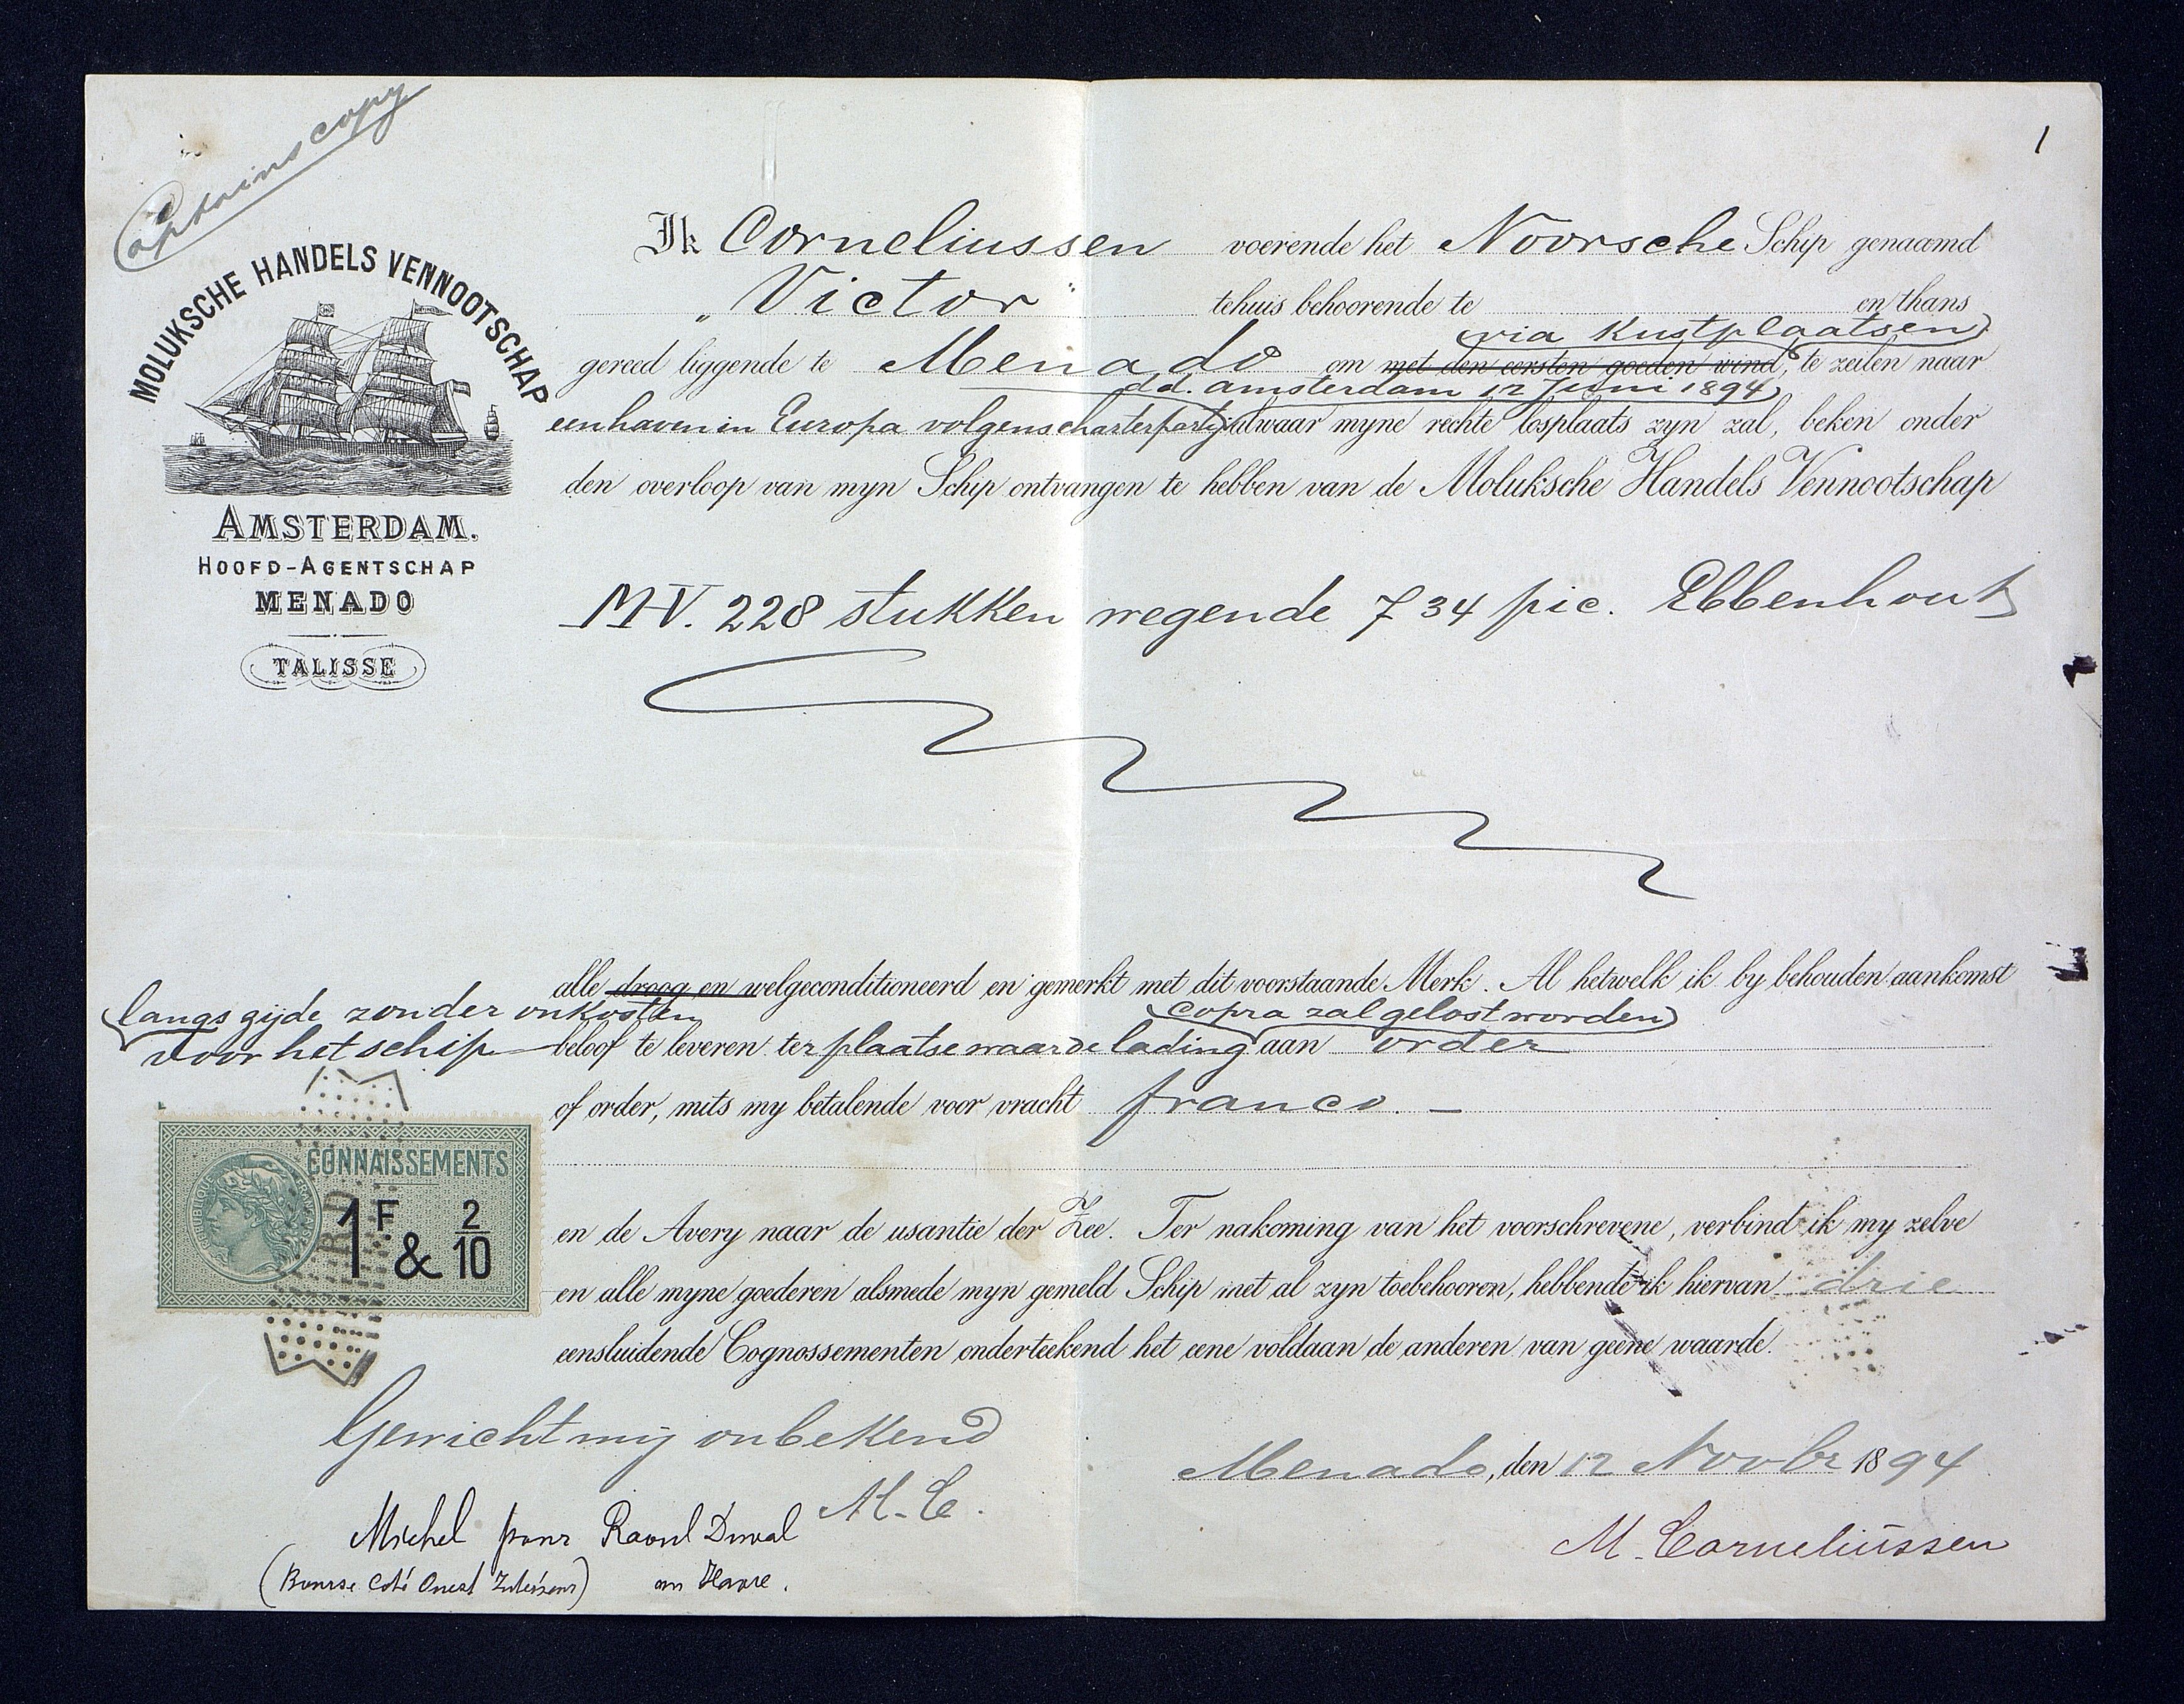 Captains copy
1
MOLUKSCHE HANDELS VENNOOTSCHAP
AMSTERDAM.
HOOFD-AGENTSCHAP
MENADO
TALISSE
Ik Corneliussen voerende het Noorsche Schip genaamd
„Victor" tehuis behoorende te en thans
(via Kustplaatsen)
gereed liggende te Menado om met den eersten goeden wind, te zeilen naar
d.d. amsterdam 12 Juni 1894)
een haven in Europa volgens charterpartij alwaar myne rechte losplaats zyn zal, beken onder
den overloop van myn Schip ontvangen te hebben van de Moluksche Handels Vennootschap
MV. 228 stukken wegende 734 pic. Ebbenhout
alle droog en welgeconditioneerd en gemerkt met dit voorstaande Merk. Al hetwelk ik by behouden aankomst
(langs zijde zonder onkosten
copra zal gelost worden)
voor het schip beloof te leveren ter plaatse waar de lading aan order
of order, mits my betalende voor vracht franco. -
en de Avery naar de usantie der Zee. Ter nakoming van het voorschrevene, verbind ik my zelve
en alle myne goederen alsmede myn gemeld Schip met al zyn toebehooren, hebbende ik hiervan drie
eensluidende Cognossementen onderteekend het eene voldaan de anderen van geene waarde.
CONNAISSEMENTS
1F & 2/10
Gewicht mij onbekend
M. C.
Menado, den 12 Novbr 1894
M. Corneliussen
Michel pour Raoul Duval
(Bourse Coté Ouest Intérieur) au Havre.